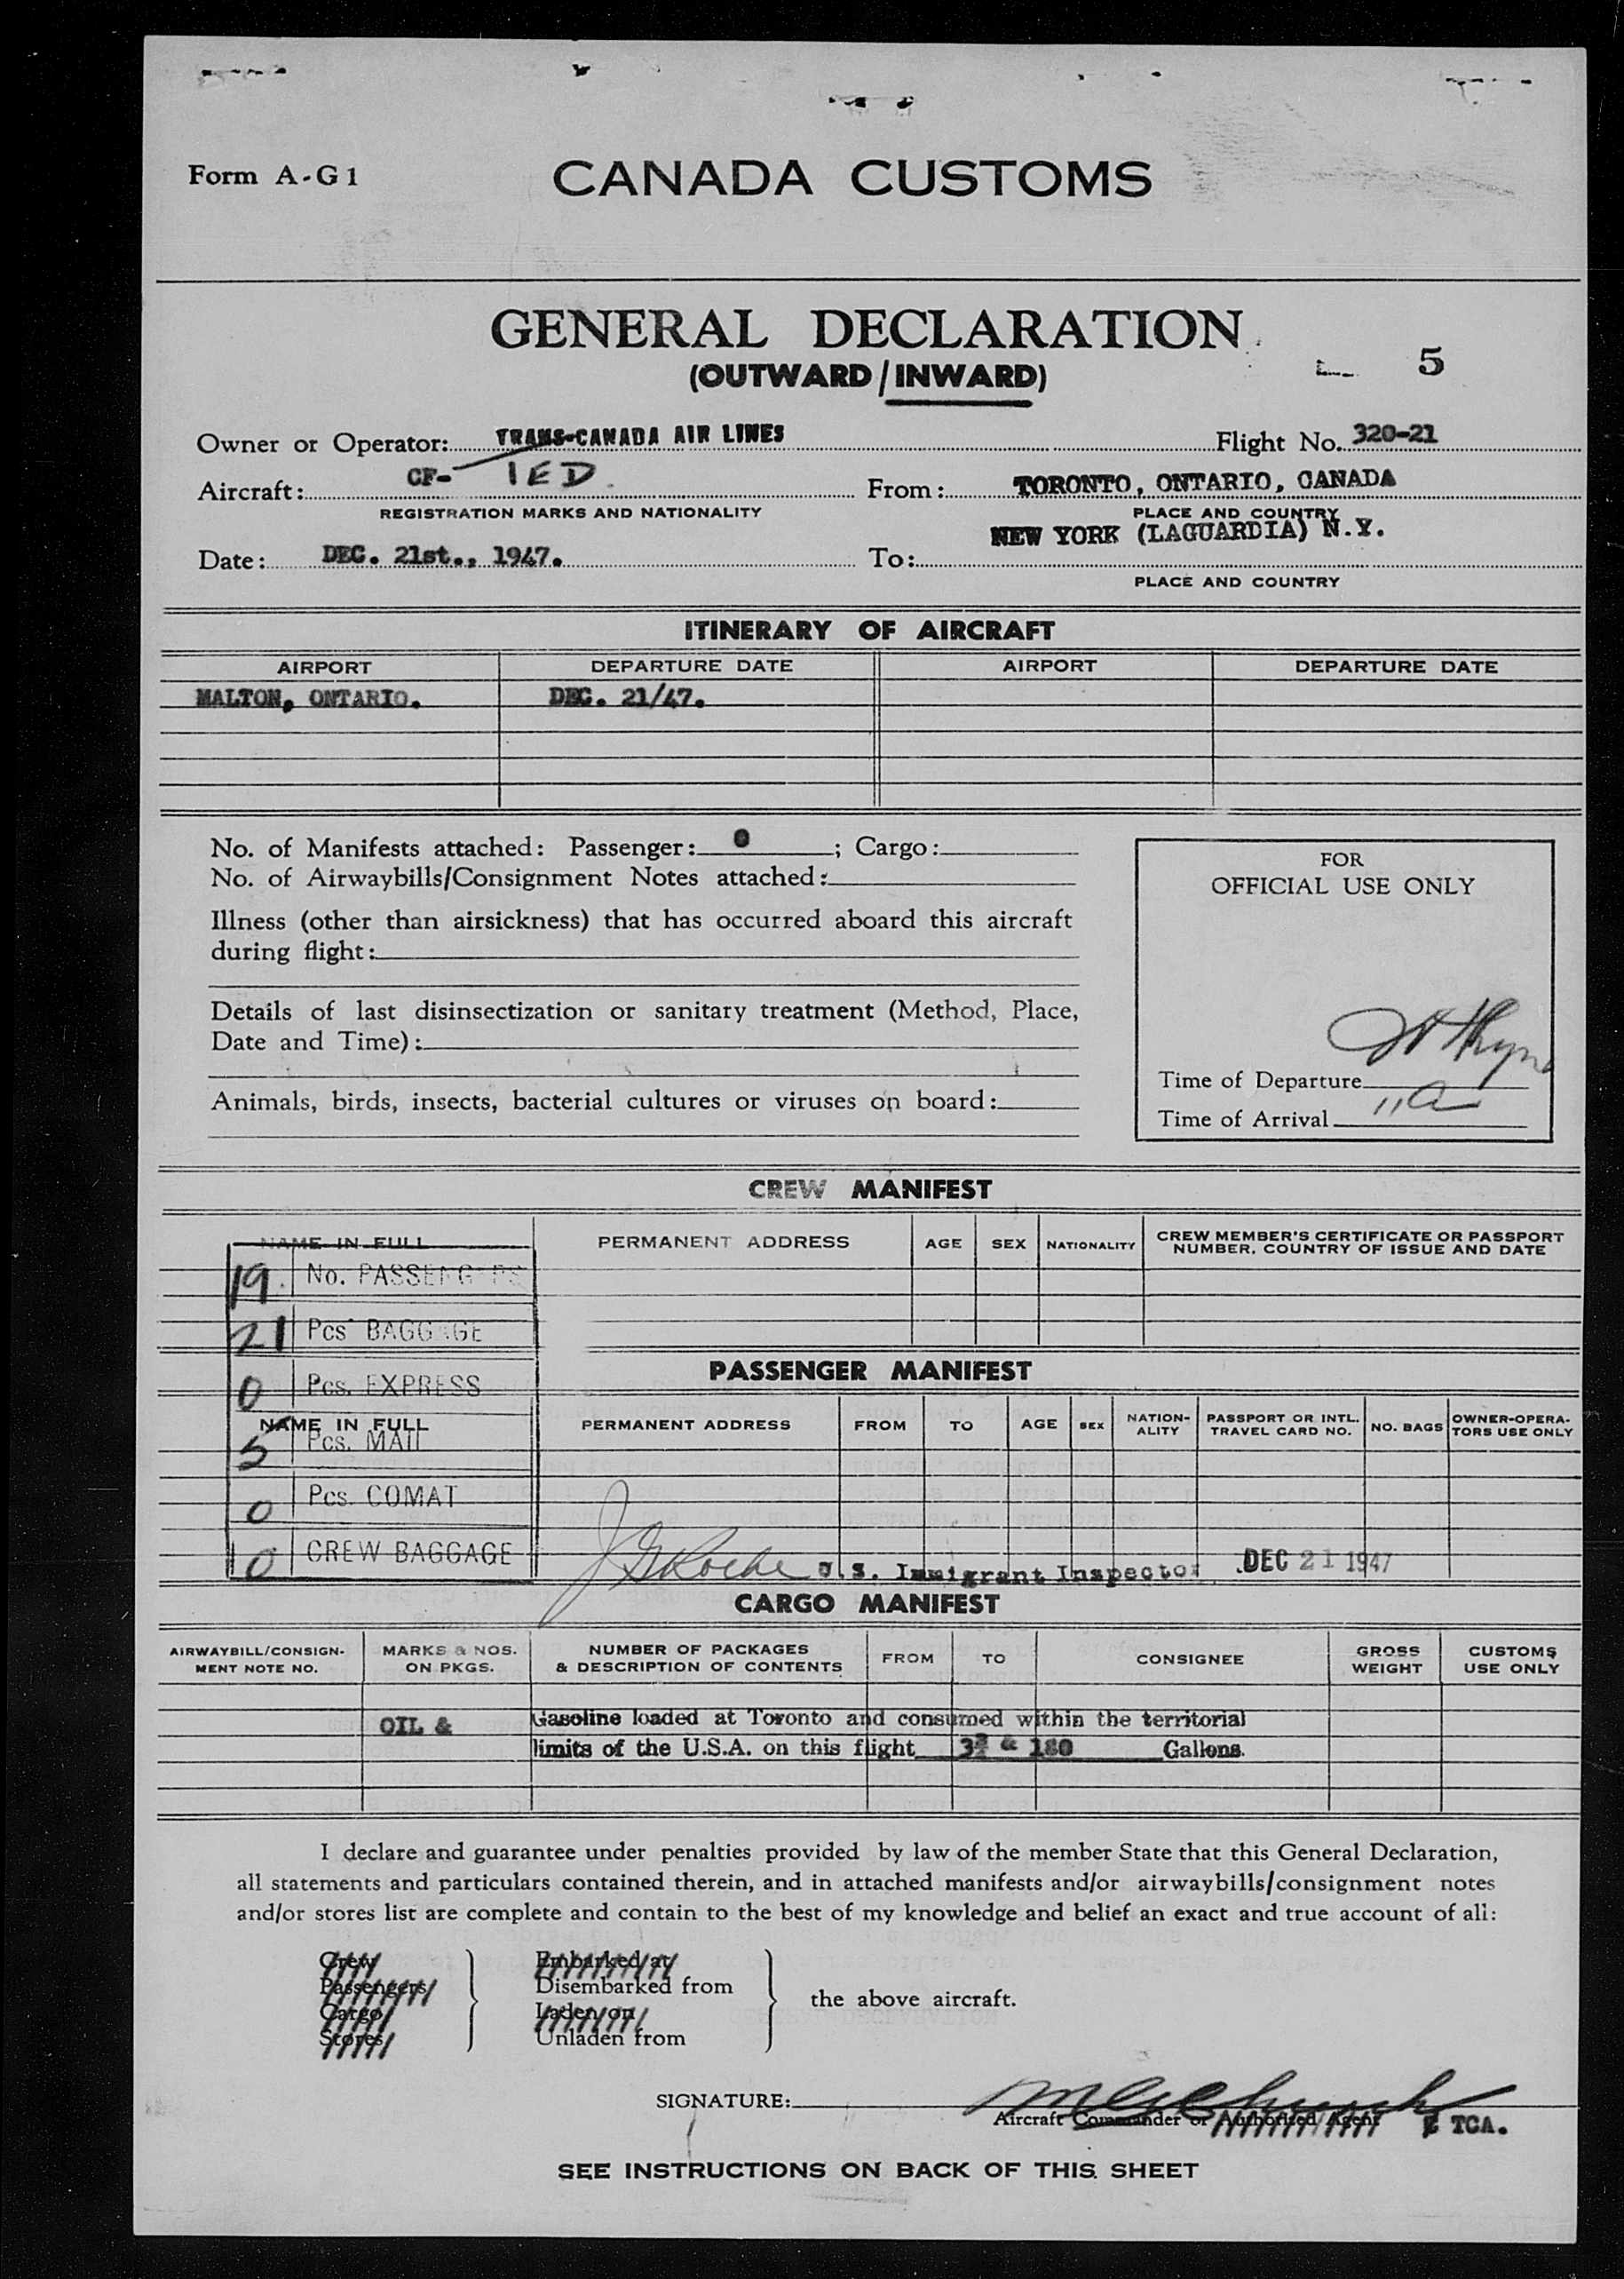 Form A-G1
CANADA CUSTOMS
GENERAL DECLARATION
(OUTWARD/INWARD)
5
Owner or Operator: TRANS-CANADA AIR LINES Flight No. 320-21
Aircraft: CF- IED From: TORONTO, ONTARIO, CANADA
REGISTRATION MARKS AND NATIONALITY PLACE AND COUNTRY
NEW YORK (LAGUARDIA) N.Y.
Date: DEC. 21st., 1947. To:
PLACE AND COUNTRY
ITINERARY OF AIRCRAFT
AIRPORT DEPARTURE DATE AIRPORT DEPARTURE DATE
MALTON, ONTARIO. DEC. 21/47.
No. of Manifests attached: Passenger: 0 ; Cargo:
No. of Airwaybills/Consignment Notes attached:
Illness (other than airsickness) that has occurred aboard this aircraft
during flight:
Details of last disinsectization or sanitary treatment (Method, Place,
Date and Time):
Animals, birds, insects, bacterial cultures or viruses on board:
FOR
OFFICIAL USE ONLY
Time of Departure
Time of Arrival
CREW MANIFEST
NAME IN FULL PERMANENT ADDRESS AGE SEX NATIONALITY CREW MEMBER'S CERTIFICATE OR PASSPORT
NUMBER, COUNTRY OF ISSUE AND DATE
19 No. PASSENGERS
21 Pcs BAGGAGE
PASSENGER MANIFEST
0 Pcs. EXPRESS
NAME IN FULL PERMANENT ADDRESS FROM TO AGE SEX NATION-
ALITY PASSPORT OR INTL.
TRAVEL CARD NO. NO. BAGS OWNER-OPERA-
TORS USE ONLY
5 Pcs. MAIL
0 Pcs. COMAT
0 CREW BAGGAGE
U.S. Immigrant Inspector DEC 21 1947
CARGO MANIFEST
AIRWAYBILL/CONSIGN-
MENT NOTE NO. MARKS & NOS.
ON PKGS. NUMBER OF PACKAGES
& DESCRIPTION OF CONTENTS FROM TO CONSIGNEE GROSS
WEIGHT CUSTOMS
USE ONLY
OIL & Gasoline loaded at Toronto and consumed within the territorial
limits of the U.S.A. on this flight & 180 Gallons.
I declare and guarantee under penalties provided by law of the member State that this General Declaration,
all statements and particulars contained therein, and in attached manifests and/or airwaybills/consignment notes
and/or stores list are complete and contain to the best of my knowledge and belief an exact and true account of all:
Crew Embarked at
Passengers Disembarked from
the above aircraft.
Cargo Laden on
Stores Unladen from
SIGNATURE:
Aircraft Commander or Authorized Agent TCA.
SEE INSTRUCTIONS ON BACK OF THIS SHEET